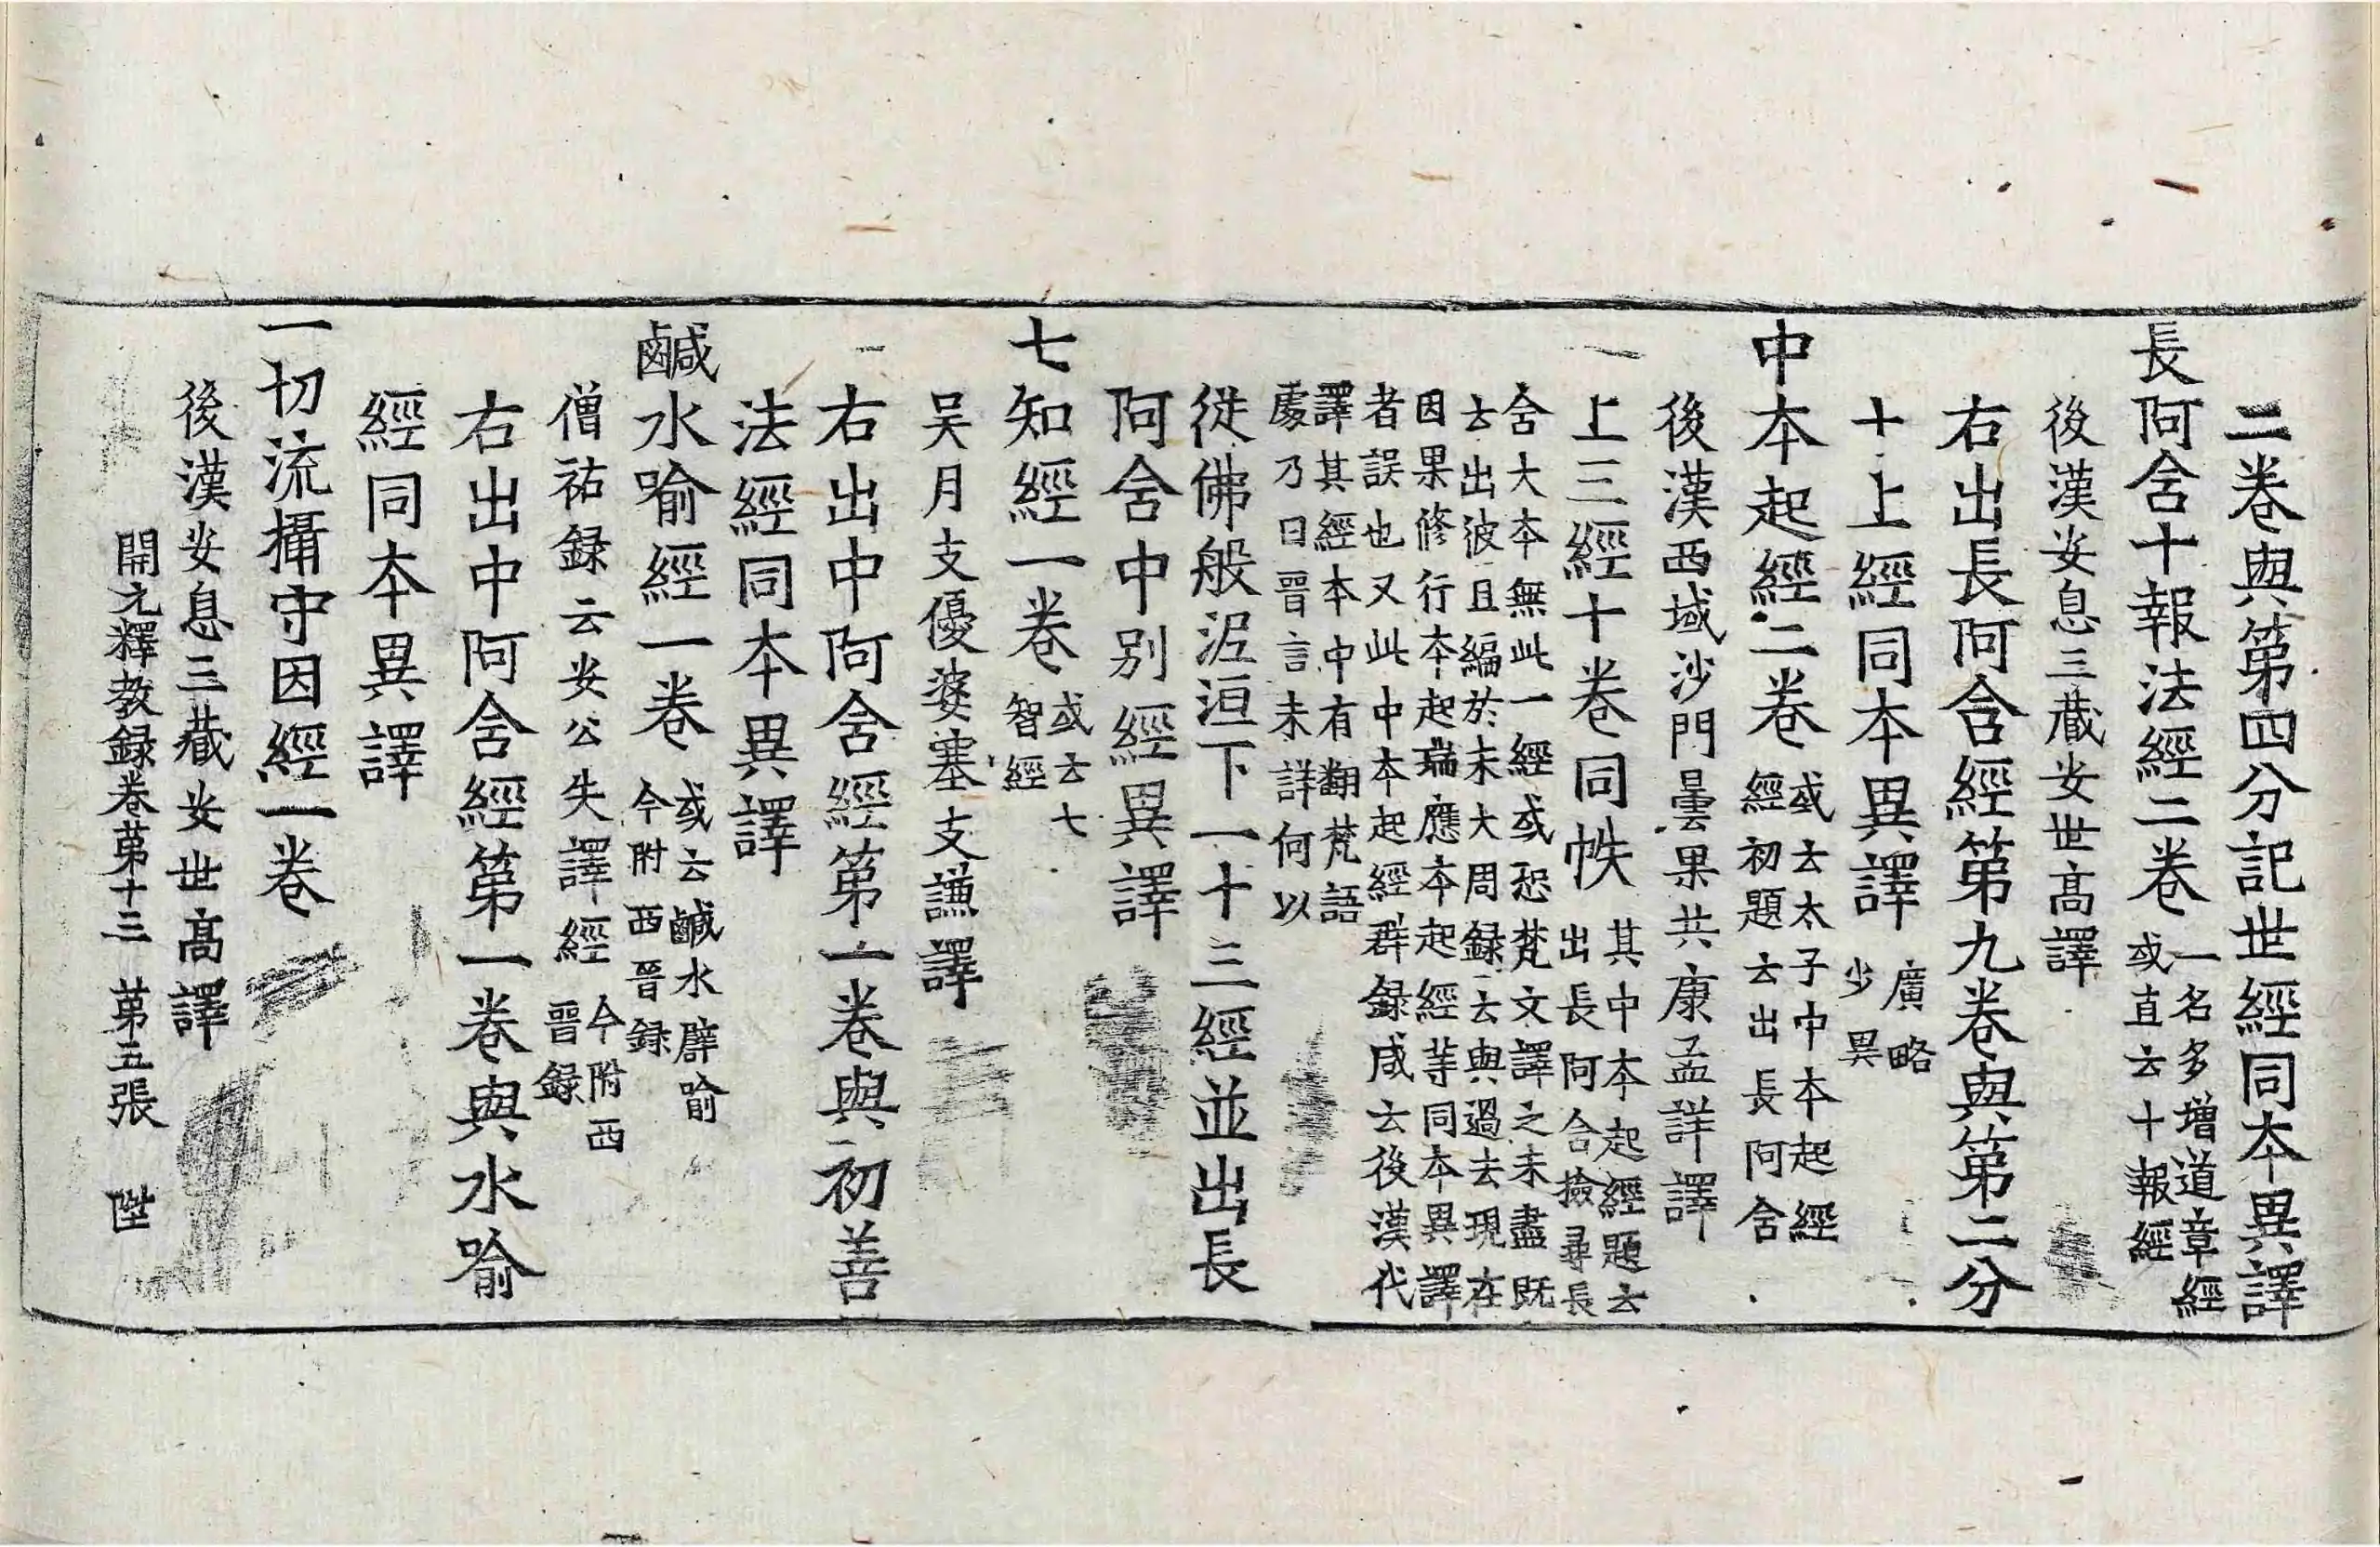 二卷與第四分記世經同本異譯
長阿含十報法經二卷
一名多增道章經
或直云十報經
後漢安息三藏安世高譯
右出長阿含經第九卷與第二分
十上經同本異譯
廣略
少異
中本起經二卷
或云太子中本起經
經初題云出長阿含
後漢西域沙門曇果共康孟詳譯
上三經十卷同帙
其中本起經題云
出長阿含撿尋長
含大本無此一經或恐梵文譯之未盡既
云出彼且編於末大周録云與過去現在
因果修行本起瑞應本起經等同本異譯
者誤也又此中本起經群録咸云後漢代
譯其經本中有翻梵語
處乃曰晉言未詳何以
從佛般泥洹下一十三經並出長
阿含中別經異譯
七知經一卷
或云七
智經
吴月支優婆塞支謙譯
右出中阿含經第一卷與初善
法經同本異譯
鹹水喻經一卷
或云鹹水譬喻
今附西晉録
僧祐録云安公失譯經
今附西
晉録
右出中阿含經第一卷與水喻
經同本異譯
一切流攝守因經一卷
後漢安息三藏安世高譯
開元釋教録卷第十三 第五張 陞